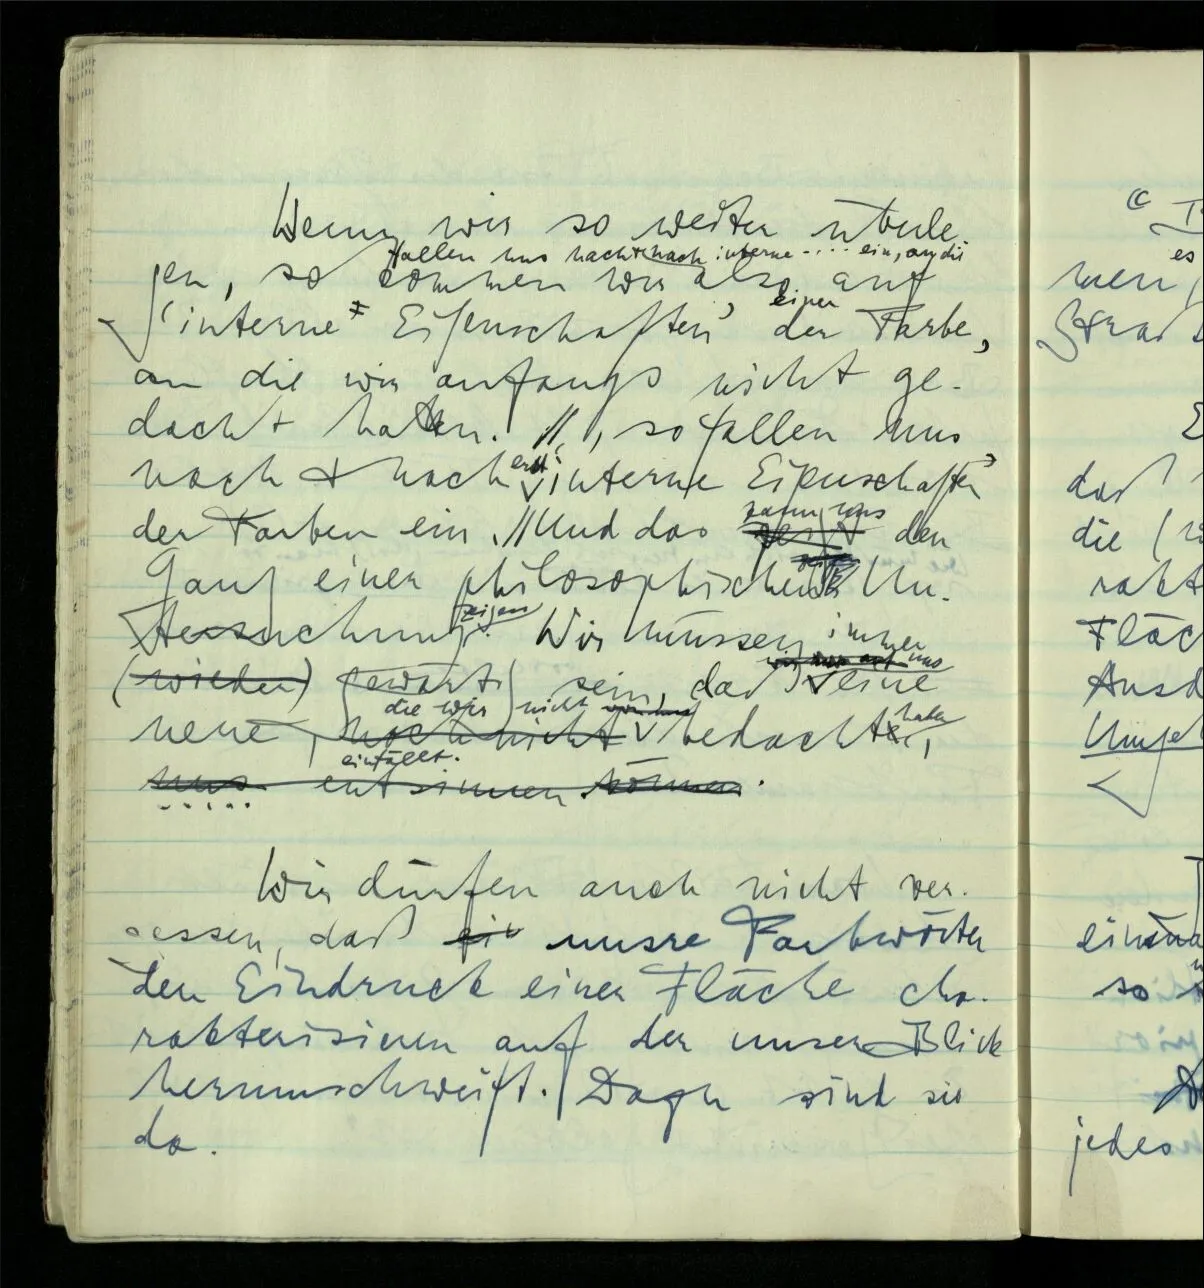 Wenn wir so weiter überle-
fallen uns nach & nach interne .... ein, an die
gen, so kommen wir also auf
einer
'interne' Eigenschaften' der Farbe,
an die wir anfangs nicht ge-
dacht hatten. //, so fallen uns
nach & nach erst interne Eigenschaften
der Farben ein. // Und das
kann uns
den
Gang einer philosophischen Un-
tersuchung zeigen. Wir müssen immer
(wieder) gewärtig sein, daß uns eine
die wir nicht
neue, noch nicht bedacht haben,
einfällt.
uns entsinnen können.
Wir dürfen auch nicht ver-
gessen, daß unsre Farbwörter
den Eindruck einer Fläche cha-
rakterisieren auf der unser Blick
herumschweift. Dazu sind sie
da.
es
men,
Grad
daß
die
rakt
Fläc
Ausd
Umge
so
jedes